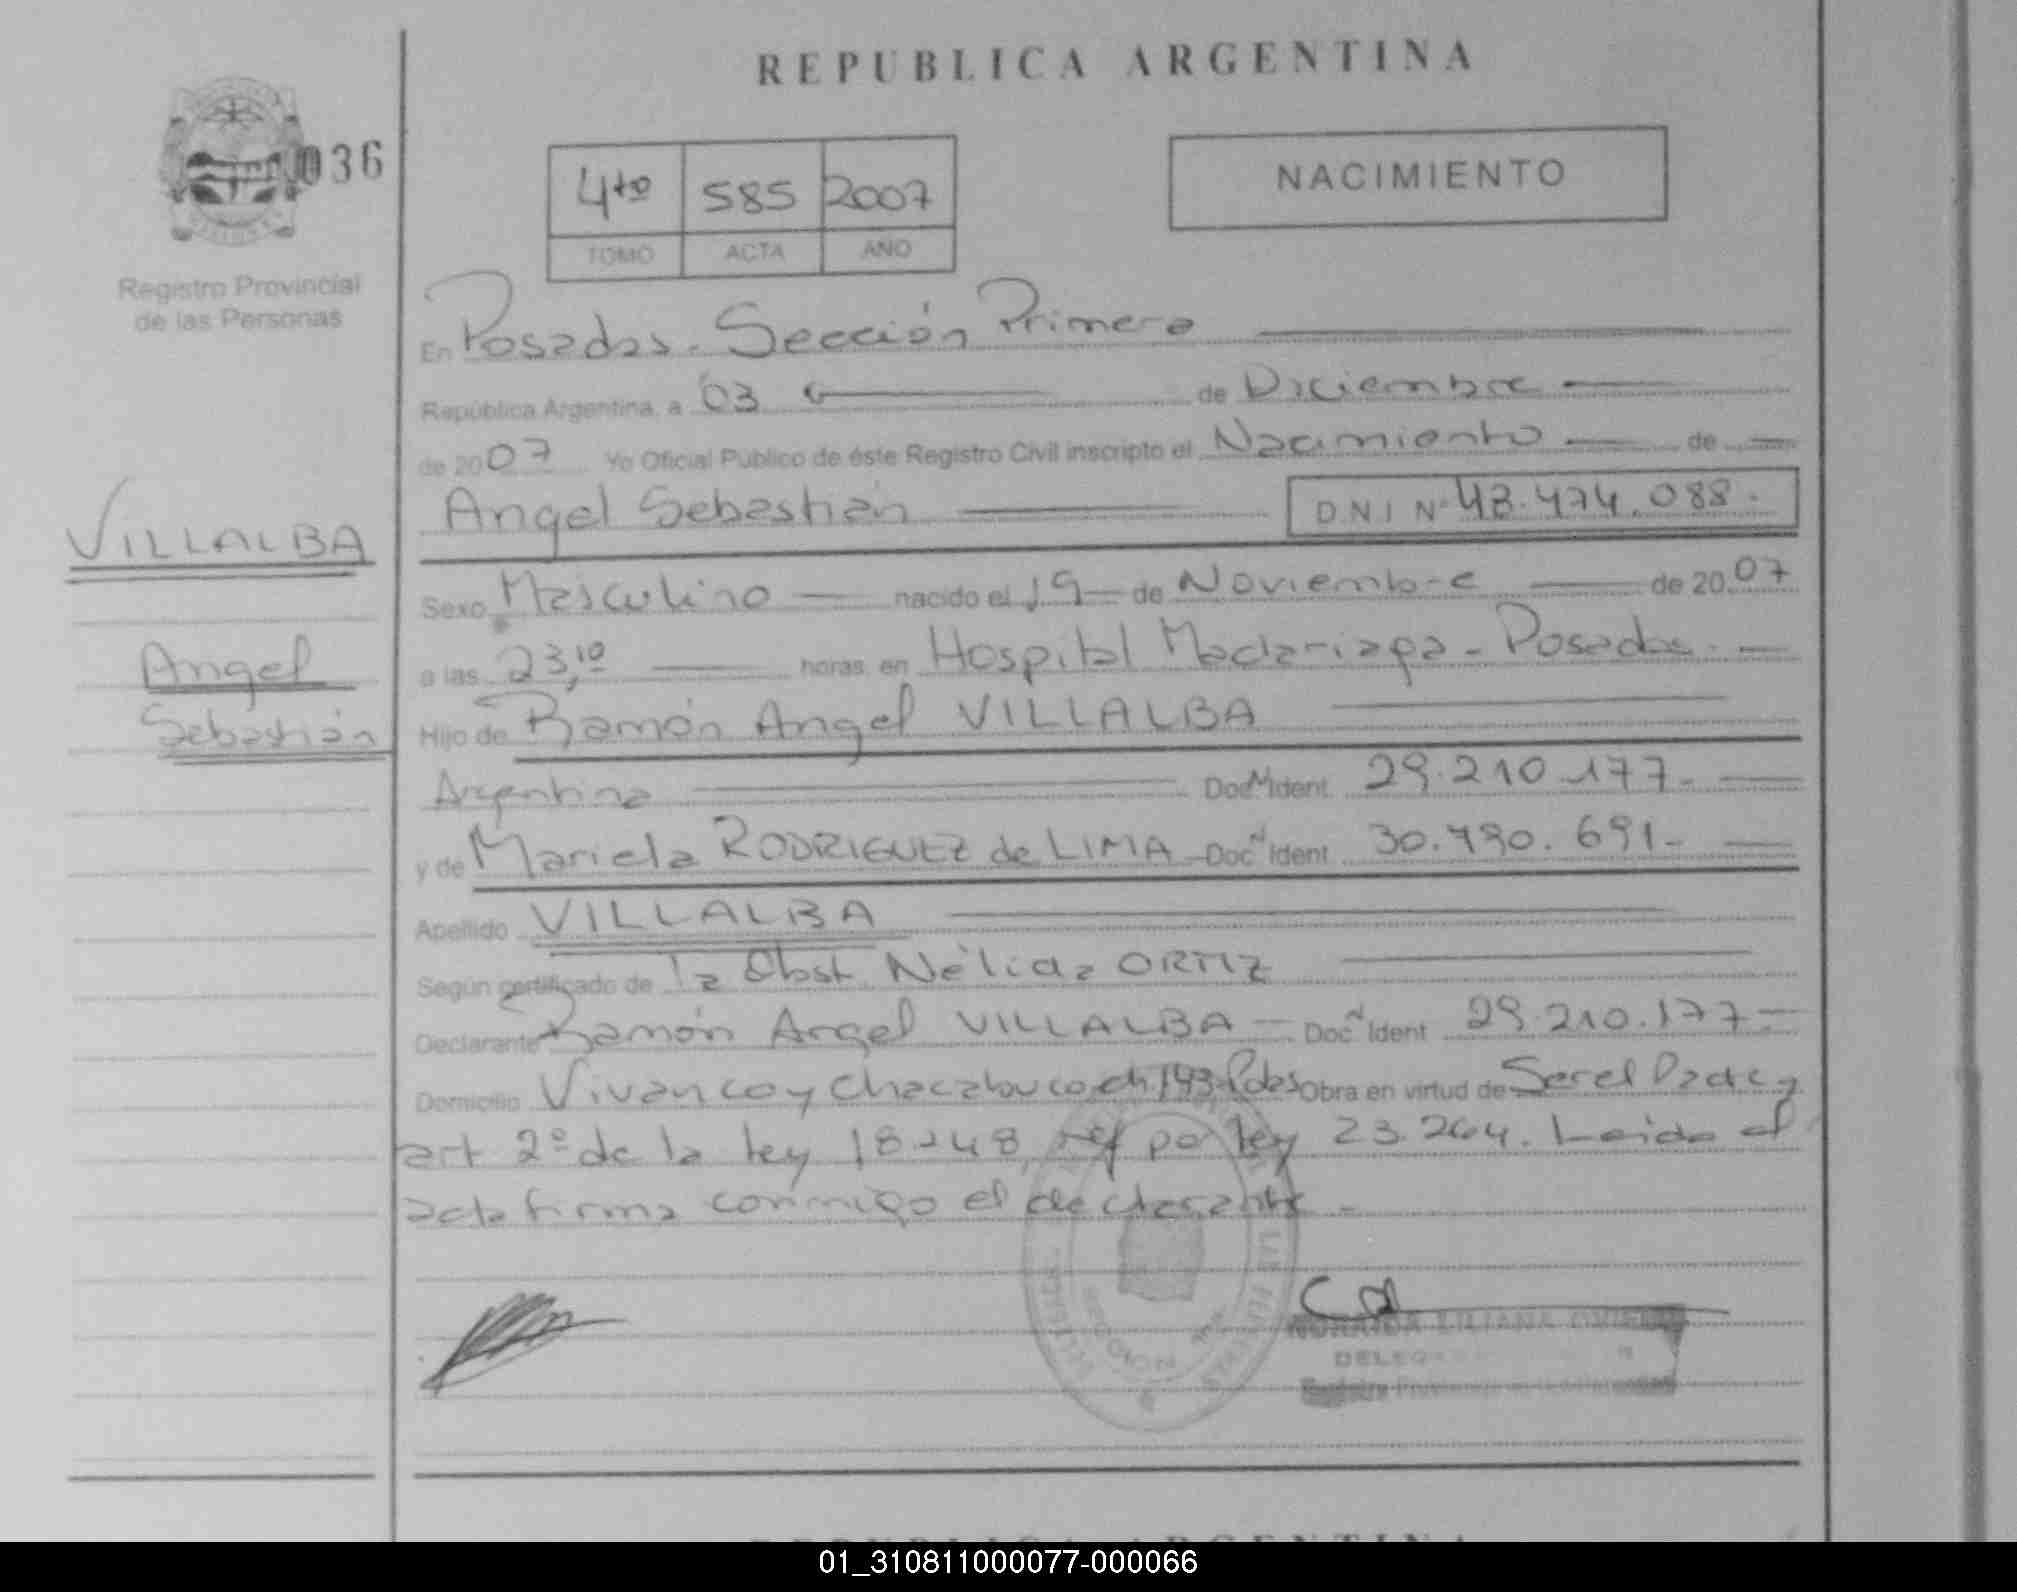 REPUBLICA ARGENTINA
036
Registro Provincial
de las Personas
4to 585 2007
TOMO ACTA AÑO
NACIMIENTO
En Posadas. Sección Primera
República Argentina, a 03 de Diciembre
de 2007 Yo Oficial Público de éste Registro Civil inscripto el Nacimiento de
Angel Sebastián D.N.I Nº 48.474.088.
VILLALBA
Angel
Sebastián
Sexo Masculino nacido el 19 de Noviembre de 2007
a las 23,10 horas, en Hospital Madariaga - Posadas.
Hijo de Ramón Angel VILLALBA
Argentina Doc Nº Ident. 29.210.177.
y de Mariela RODRIGUEZ de LIMA Doc Nº Ident. 30.790.691-
Apellido VILLALBA
Según certificado de la Obst. Nélida ORTIZ
Declarante Ramón Angel VILLALBA - Doc Nº Ident 29.210.177-
Domicilio Vivanco y Chacabuco ch 143 Pdas Obra en virtud de Ser el Padre y
art 2º de la ley 18248, ref por ley 23.264. Leida el
acta firma conmigo el declarante.-
LILIANA
01_310811000077-000066